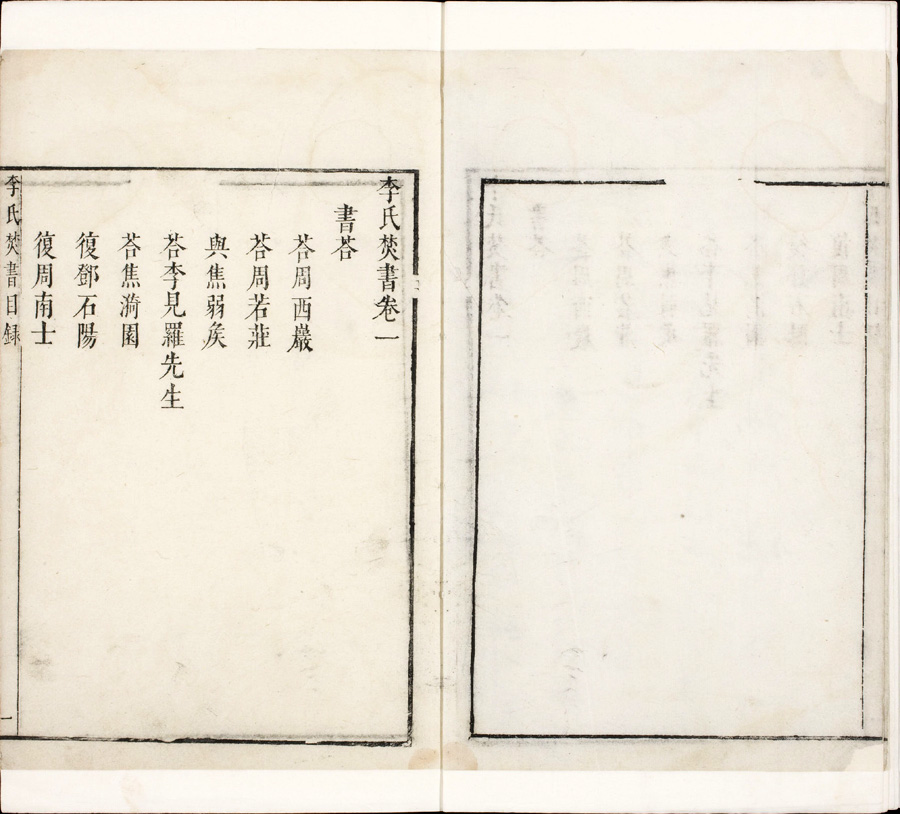 李氏焚書卷一
書荅
荅周西巖
荅周若莊
與焦弱矦
荅李見羅先生
荅焦漪園
復鄧石陽
復周南士
李氏焚書目録
一